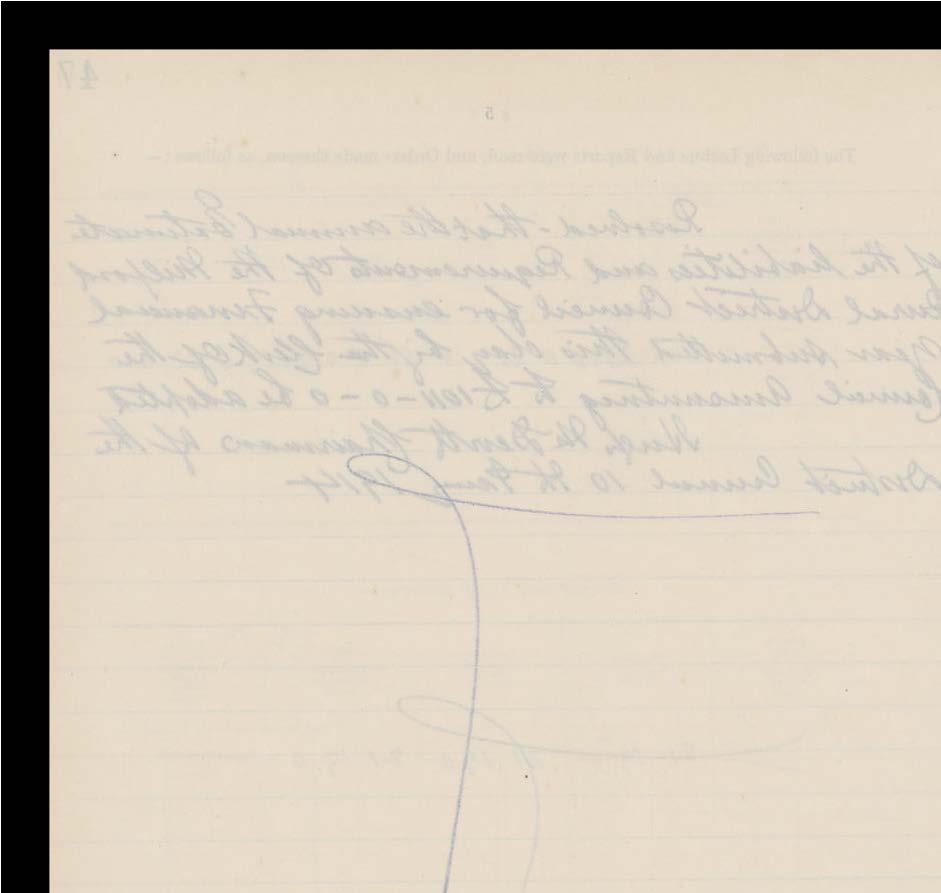 47
5
The following Letters and Reports were read, and Orders made thereon, as follows:—
Resolved - that the annual Estimate
of the liabilities and Requirements of the Milford
Rural District Council for ensuing Financial
Year submitted this day by the Clerk of the
Council amounting to £1011-0-0 be adopted
Hugh Mc Devitt Chairman of the
District Council 10th 1914